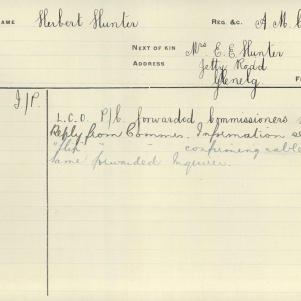 AME Herbert Hunter REG. &C. A M C
NEXT OF KIN Mrs E. E. Hunter
ADDRESS Jetty Road
Glenelg
I/P
L.C.O. P/C. forwarded Commissioners
Reply from Commrs. Information se
" " confirming cable
same forwarded Inquirer.